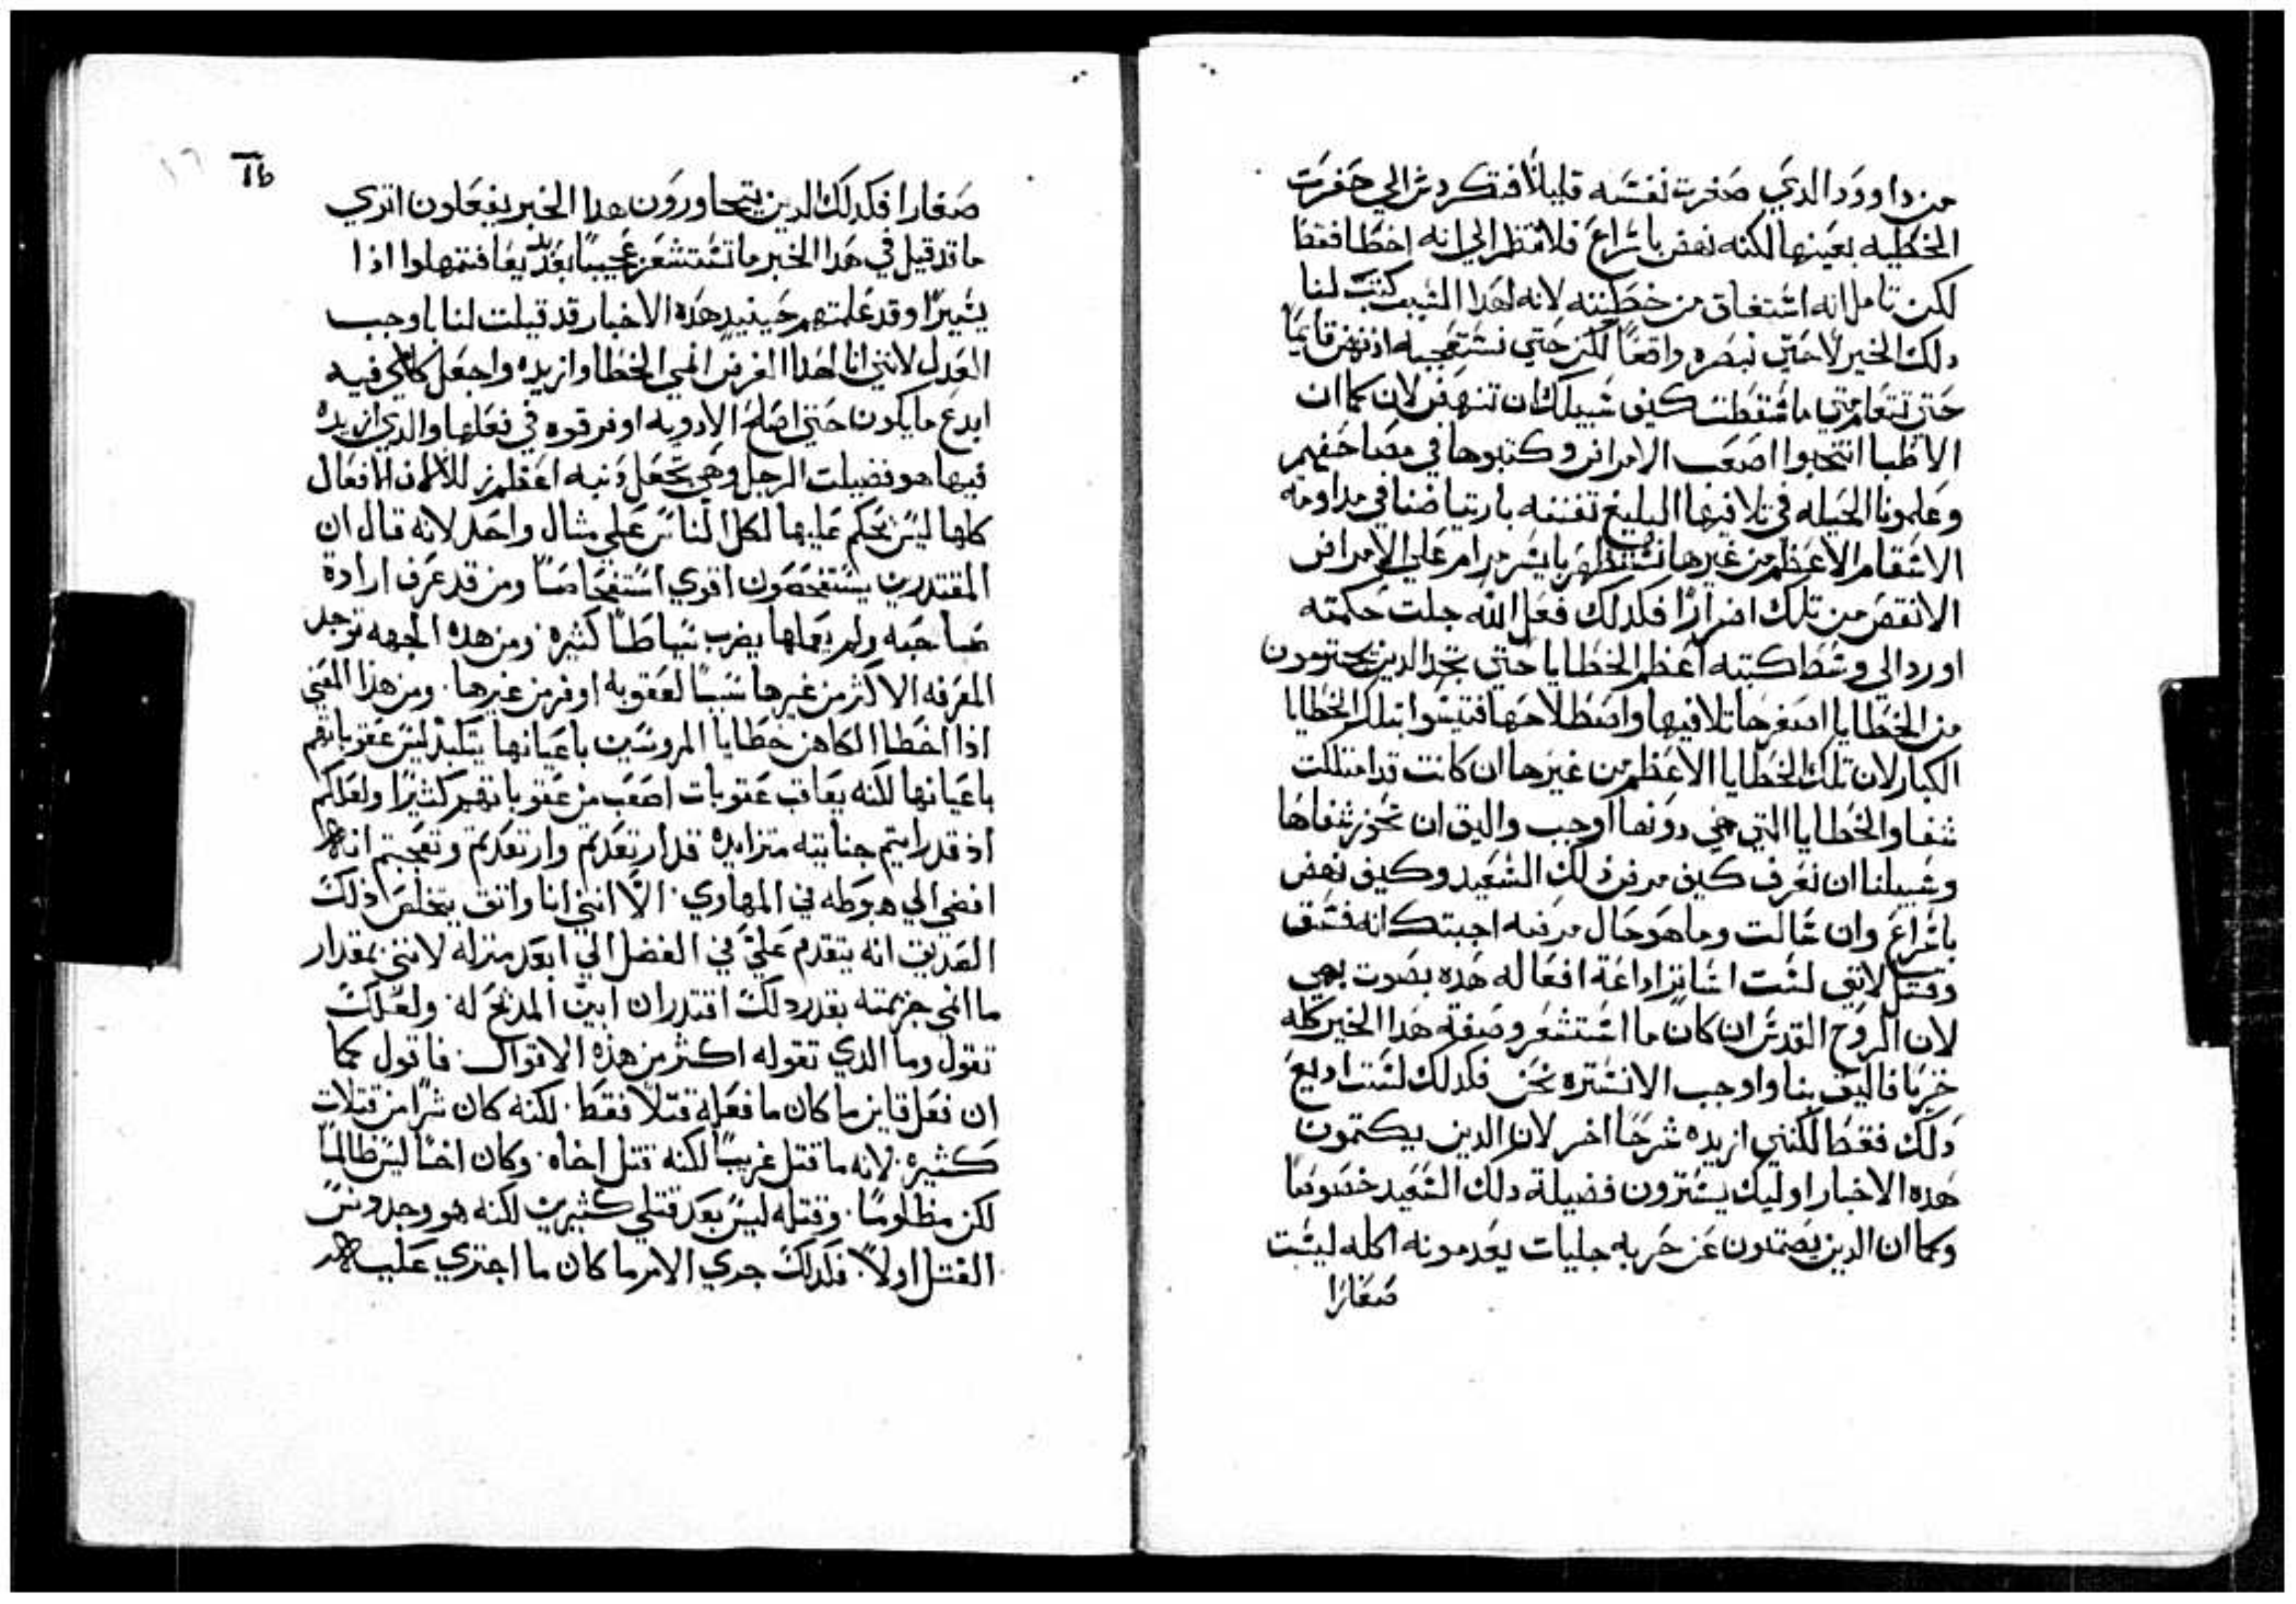 من داوود الدي صغرت نفسه قليلاً فتكردس الي حفرت
الخطيه بعينها لكنه نهض باسراع فلا تنظر الي انه اخطا فقط
لكن تامل انه استفاق من خطيته لانه لهدا السبب كتب لنا
دلك الخبر لا حتي نبصره واقعاً لكن حتي نستعجبه اد نهض قايماً
حتي تتعلم متي ما سقطت كيف سبيلك ان تنهض لان كما ان
الاطبا انتخبوا اصعب الامراض وكتبوها في مصاحفهم
وعلمونا الحيله في تلافيها البليغ تفننه بارتياضنا في مداومة
الاسقام الاعظم من غيرها نستظهر بايسر مرام علي الامراض
الانقص من تلك اضراراً فكدلك فعل الله جلت حكمته
اورد الي وسط كتبه اعظم الخطايا حتي تجد الدين يجترمون
من الخطايا اصغرها تلافيها واصطلاحها متيسرا بتلك الخطايا
الكبار لان تلك الخطايا الاعظم من غيرها ان كانت قد امتلكت
شفا والخطايا التي هي دونها اوجب واليق ان تحوز شفاها
وسبيلنا ان نعرف كيف مرض دلك السعيد وكيف نهض
باسراع وان سالت وما هو حال مرضه اجبتك انه فسق
وقتل لانني لست اشاتر اداعة افعاله هده بصوت بهي
لان الروح القدس ان كان ما استشعر وصفه هدا الخبر كله
خزياً فاليق بنا واوجب الا نستره نحن فكدلك لست اديع
دلك فقط لكنني ازيده شرحاً اخر لان الدين يكتمون
هده الاخبار اوليك يسترون فضيلة دلك السعيد خصوصاً
وكما ان الدين يصمتون عن حربه جليات يعدمونه اكله ليست
صغارا
16
صغارا فكدلك الدين يتجاورون هدا الخبر يفعلون اتري
ما قد قيل في هدا الخبر ما تستشعر عجيباً بعد بديعاً فتمهلوا ادا
يسيراً وقد علمتم حينيد هده الاخبار قد قيلت لنا باوجب
العدل لانني انا لهدا الغرض انمي الخطا وازيده واجعل كلامي فيه
ابدع ما يكون حتي اصلح الادويه اوفر قوه في فعلها والدي ازيده
فيها هو فضيلت الرجل وهي تجعل دنبه اعظم لان الافعال
كلها ليس يحكم عليها لكل الناس علي مثال واحد لانه قال ان
المقتدرين يستفحصون اقوي استفحاصاً ومن قد عرف ارادة
صاحبه ولم يعملها يضرب سياطاً كثيره ومن هده الجهه توجد
المعرفه الاكثر من غيرها سبباً لعقوبه اوفر من غيرها. ومن هذا المعني
اذا اخطا الكاهن خطايا المروسين باعيانها يتكبد ليس عقوباتهم
باعيانها لكنه يعاقب عقوبات اصعب من عقوباتهم كثيراً ولعلكم
اذ قد رايتم جنايته متزايده قد ارتعدتم وارتعدتم وتعجبتم انه
افضي الي هبوطه في المهاوي. الا انني انا واثق بتخلص ذلك
الصديق انه يتقدم علي في الفضل الي ابعد منزله لانني بمقدار
ما انمي جريمته بقدر دلك اقتدر ان ابين المديح له. ولعلك
تقول وما الدي تقوله اكثر من هذه الاقوال. فاقول كما
ان فعل قاين ما كان ما فعله قتلاً فقط. لكنه كان شراً من قتلات
كثيره. لانه ما قتل غريباً لكنه قتل اخاه. وكان اخاً ليس ظالماً
لكن مظلوماً. وقتله ليس بعد قتلي كثيرين لكنه هو وجد دنس
القتل اولاً. فكدلك جري الامر ما كان ما اجتري عليه